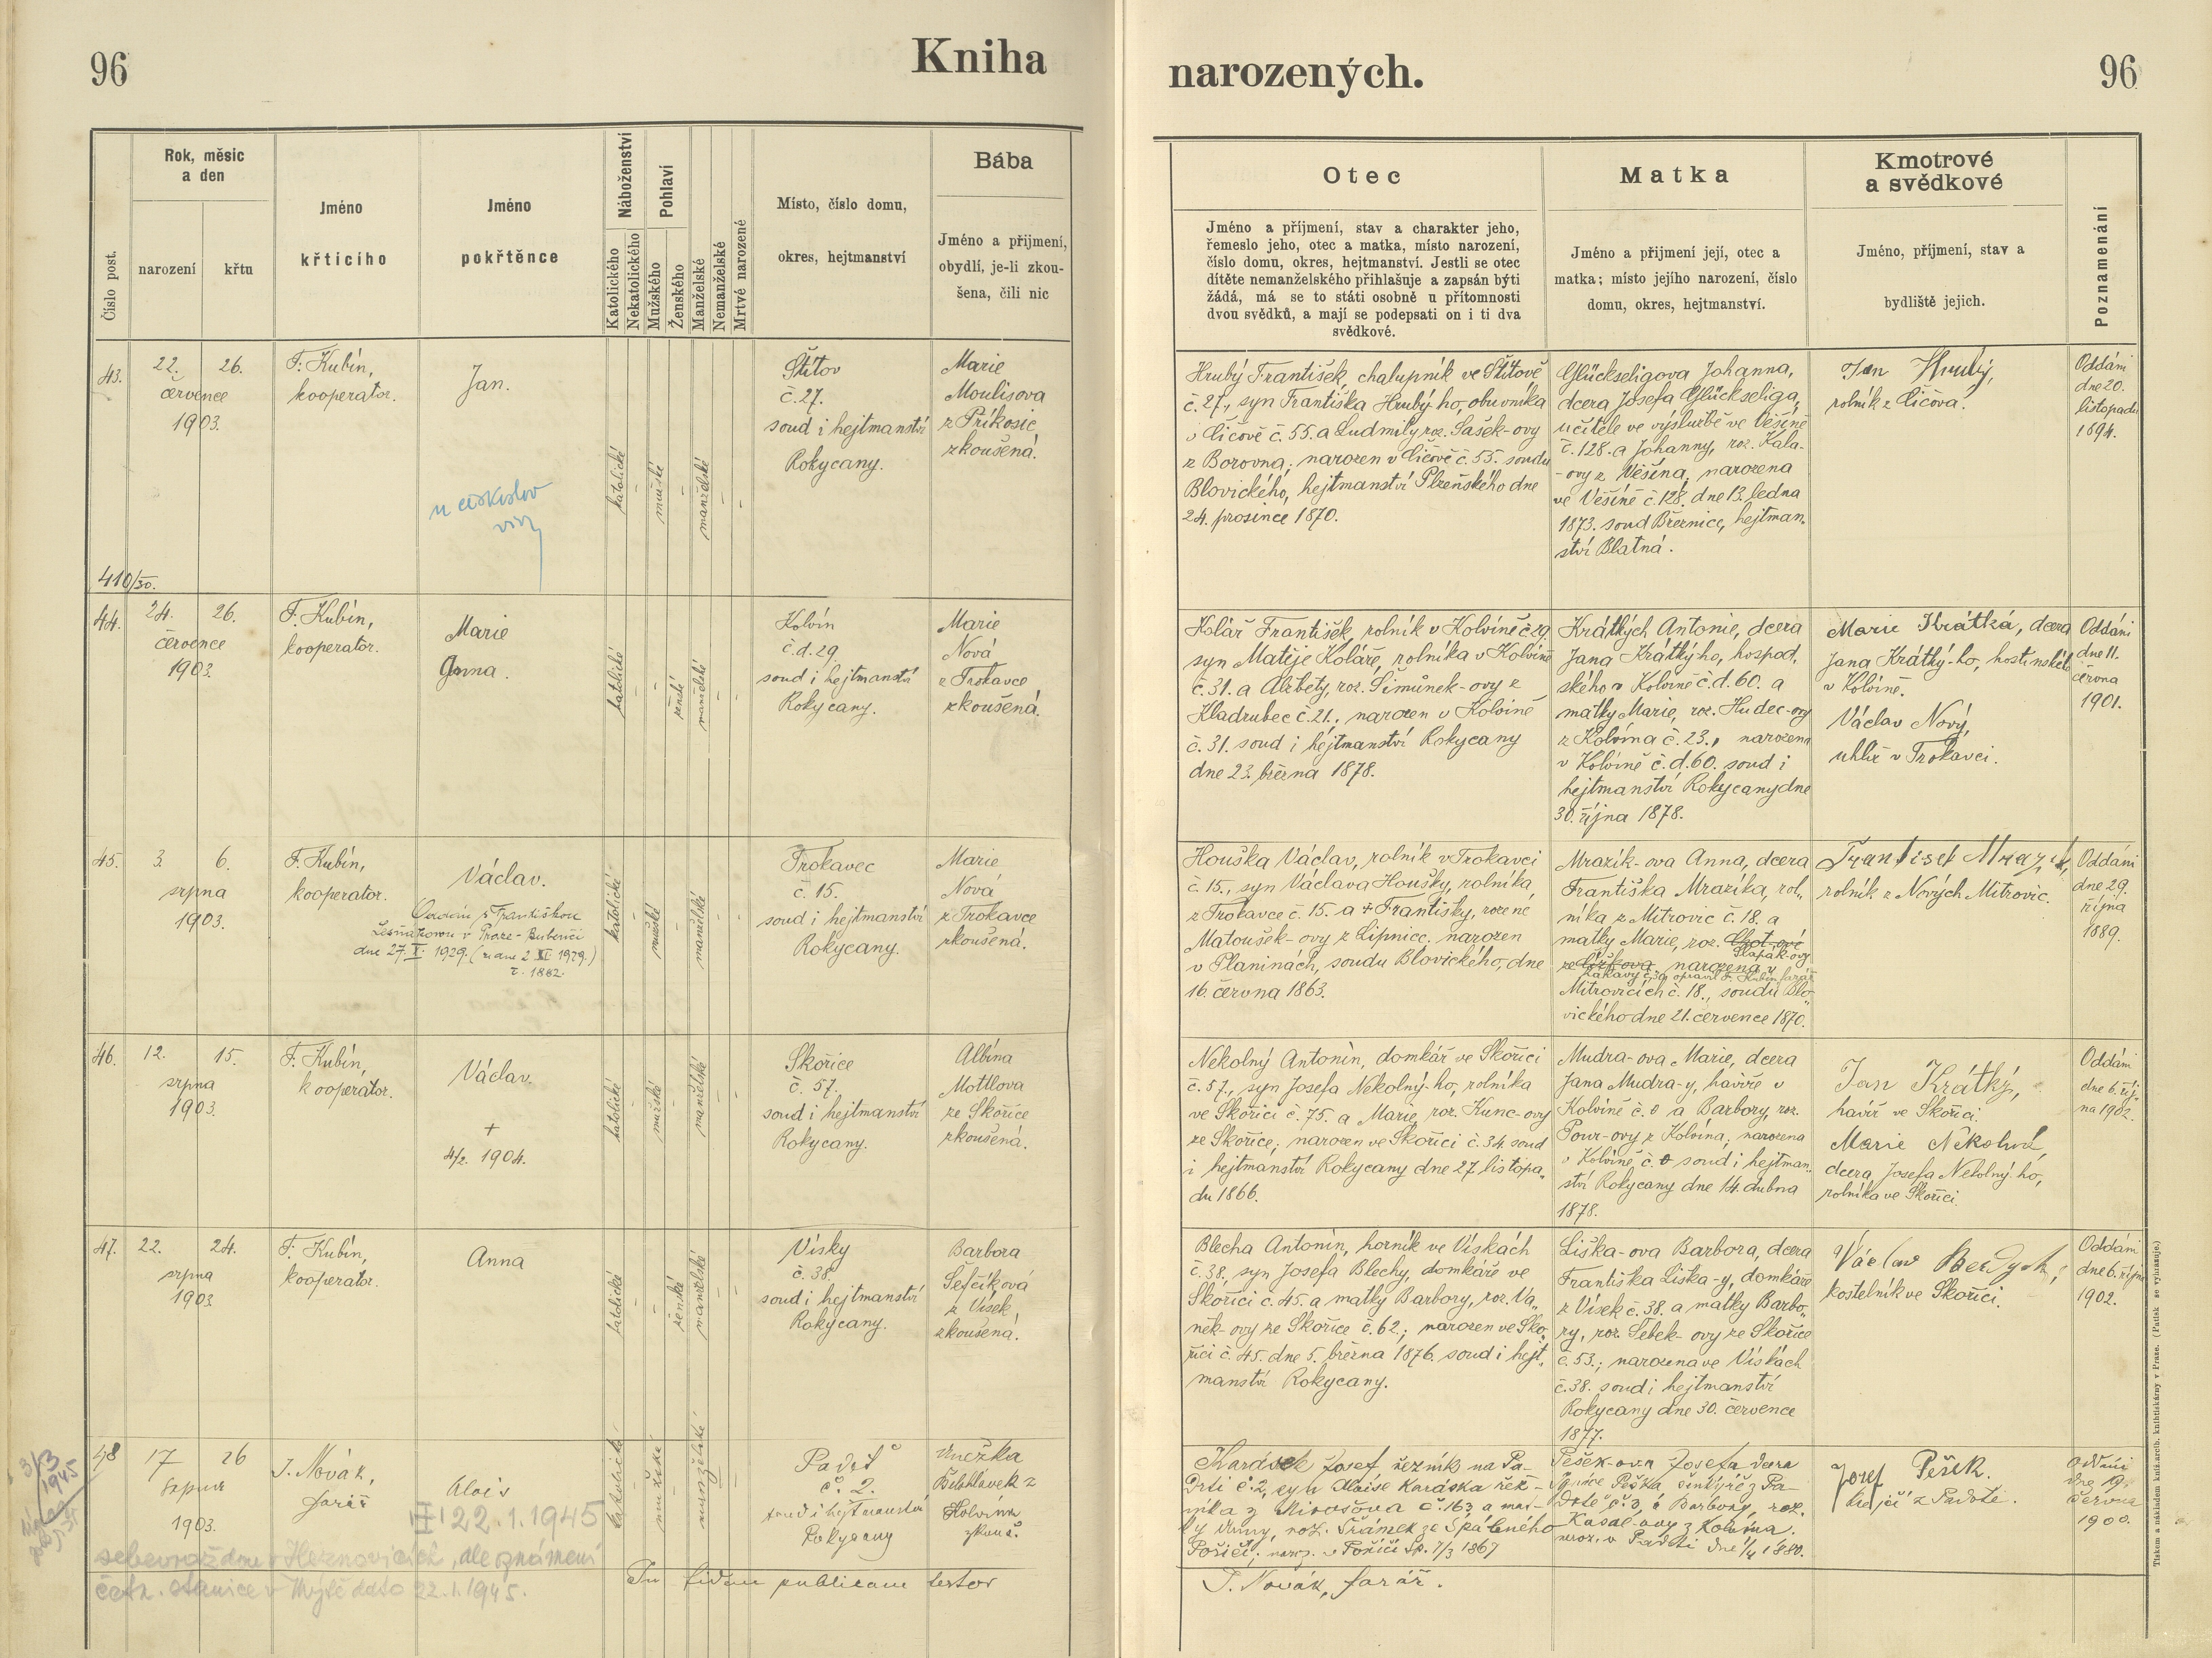 96
Kniha
narozených.
96
Číslo post.
Rok, měsíc
a den
narození
křtu
Jméno
křticího
Jméno
pokřtěnce
Náboženství
Katolického
Nekatolického
Pohlaví
Mužského
Ženského
Manželské
Nemanželské
Mrtvé narozené
Místo, číslo domu,
okres, hejtmanství
Bába
Jméno a přijmení,
obydlí, je-li zkou-
šena, čili nic
Otec
Jméno a příjmení, stav a charakter jeho,
řemeslo jeho, otec a matka, místo narození,
číslo domu, okres, hejtmanství. Jestli se otec
dítěte nemanželského přihlašuje a zapsán býti
žádá, má se to státi osobně u přítomnosti
dvou svědků, a mají se podepsati on i ti dva
svědkové.
Matka
Jméno a přijmení její, otec a
matka; místo jejího narození, číslo
domu, okres, hejtmanství.
Kmotrové
a svědkové
Jméno, příjmení, stav a
bydliště jejich.
Poznamenání
43.
22. 26.
července
1903.
F. Kubín,
kooperator.
Jan.
katolické
mužské
manželské
Štítov
č. 27.
soud i hejtmanství
Rokycany.
Marie
Moulisova
z Příkosic
zkoušená.
410/30.
Hrubý František, chalupník ve Štítově
č. 27., syn Františka Hrubý-ho, obuvníka
v Čičově č. 55. a Ludmily roz. Sašek-ovy
z Borovna; narozen v Čičově č. 55. soudu
Blovického, hejtmanství Plzeňského dne
24. prosince 1870.
Glückseligova Johanna,
dcera Josefa Glückseliga,
učitele ve výslužbě ve Věšíně
č. 128. a Johanny, roz. Kala-
-ovy z Věšína; narozena
ve Věšíně č. 128. dne 13. ledna
1873. soud Březnice, hejtman-
ství Blatná.
Jan Hrubý,
rolník z Čičova.
Oddáni
dne 20.
listopadu
1894.
44.
24. 26.
července
1903.
F. Kubín,
kooperator.
Marie
Anna.
katolické
ženské
manželské
Kolvín
č.d. 29.
soud i hejtmanství
Rokycany.
Marie
Nová
z Trokavce
zkoušená.
Kolář František, rolník v Kolvíně č. 29.
syn Matěje Koláře, rolníka v Kolvíně
č. 31. a Alžběty, roz. Šimůnek-ovy z
Kladrubec č. 21., narozen v Kolvíně
č. 31. soud i hejtmanství Rokycany
dne 23. března 1878.
Krátkých Antonie, dcera
Jana Krátký-ho, hospod.
ského v Kolvíně č.d. 60. a
matky Marie, roz. Hudec-ovy
z Kolvína č. 23., narozena
v Kolvíně č.d. 60. soud i
hejtmanství Rokycany dne
30. října 1878.
Marie Krátká, dcera
Jana Krátký-ho, hostinského
v Kolvíně.
Václav Nový,
uhlíř v Trokavci.
Oddáni
dne 11.
června
1901.
45.
3. 6.
srpna
1903.
F. Kubín,
kooperator.
Václav.
Oddán s Františkou
v Praze-Bubenči
dne 27. X. 1929.
katolické
mužské
manželské
Trokavec
č. 15.
soud i hejtmanství
Rokycany.
Marie
Nová
z Trokavce
zkoušená.
Houška Václav, rolník v Trokavci
č. 15., syn Václava Houšky, rolníka,
z Trokavce č. 15. a + Františky, rozené
Matoušek-ovy z Lipnice. narozen
v Planinách, soudu Blovického, dne
16. června 1863.
Mrazík-ova Anna, dcera
Františka Mrazíka, rol„
níka z Mitrovic č. 18. a
matky Marie, roz.
Slapák-ovy
narozena v
opravil F. Kubín farář
Mitrovicích č. 18., soudu Blo„
vického dne 21. července 1870.
František Mrazík,
rolník z Nových Mitrovic.
Oddáni
dne 29.
října
1889.
46.
12. 15.
srpna
1903.
F. Kubín,
kooperator.
Václav.
+
4/2. 1904.
katolické
mužské
manželské
Skořice
č. 57.
soud i hejtmanství
Rokycany.
Albína
Mottlova
ze Skořice
zkoušená.
Nekolný Antonín, domkář ve Skořici
č. 57., syn Josefa Nekolný-ho, rolníka
ve Skořici č. 75. a Marie, roz. Kunc-ovy
ze Skořice; narozen ve Skořici č. 34. soud
i hejtmanství Rokycany dne 27. listopa„
du 1866.
Mudra-ova Marie, dcera
Jana Mudra-y, havíře v
Kolvíně č. 0 a Barbory, roz.
Pour-ovy z Kolvína; narozena
v Kolvíně č. 0 soud i hejtman„
ství Rokycany dne 14. dubna
1878.
Jan Krátký,
havíř ve Skořici.
Marie Nekolná,
dcera Josefa Nekolný-ho,
rolníka ve Skořici.
Oddáni
dne 6. říj-
na 1902.
47.
22. 24.
srpna
1903
F. Kubín,
kooperátor.
Anna
katolické
ženské
manželské
Vísky
č. 38.
soud i hejtmanství
Rokycany.
Barbora
Šefčíková
z Vísek
zkoušená.
Blecha Antonín, horník ve Vískách
č. 38, syn Josefa Blechy, domkáře ve
Skořici č. 45. a matky Barbory, roz. Va„
něk-ovy ze Skořice č. 62.; narozen ve Sko„
řici č. 45. dne 5. března 1876. soud i hejt„
manství Rokycany.
Liška-ova Barbora, dcera
Františka Liška-y, domkáře
z Vísek č. 38. a matky Barbo„
ry, roz. Šebek-ovy ze Skořice
č. 53.; narozena ve Vískách
č. 38. soud i hejtmanství
Rokycany dne 30. července
1877.
Václav Berdych,
kostelník ve Skořici.
Oddáni
dne 6. října
1902.
48
17 26
srpna
1903.
J. Novák,
farář
Alois
22.1.1945
sebevraždou v Heznovicích, dle oznámení
četn. stanice v Mýtě dato 22.1.1945.
3/3
1945
katolické
mužské
manželské
Padrť
č. 2.
soud i hejtmanství
Rokycany
Anežka
z
Kolvína
zkouš.
Karásek Josef řezník na Pa-
drti č. 2, syn Aloise Karáska řez-
níka z Mirošova č. 163 a mat-
ky Anny, roz. Šrámek ze Spáleného
Poříčí; naroz. v Poříčí Sp. 7/3 1867
Pešek-ova Josefa dcera
Ignáce Peška, z Pa-
drtě č. 3, a Barbory, roz.
Kasal-ovy z Kolvína.
naroz. v Padrti dne 1/4 1880.
Josef Pešek.
z Padrtě.
Oddáni
dne 19.
června
1900.
In fidem publicam testor
J. Novák, farář.
Tiskem a nákladem knih.-arcib. knihtiskárny v Praze. (Patisk se vyhrazuje.)